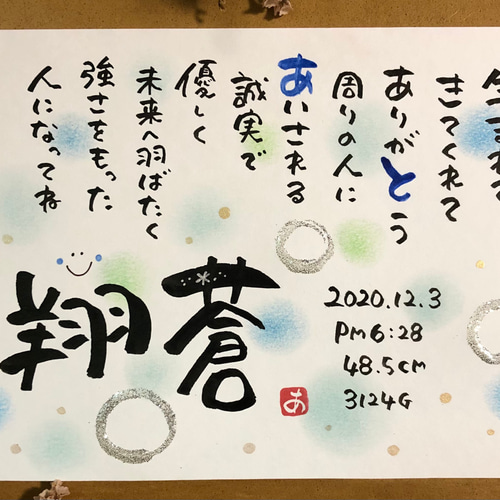 生まれて
きてくれて
ありがとう
周りの人に
あいされる
誠実で
優しく
未来へ羽ばたく
強さをもった
人になってね
蒼翔
2020.12.3
PM6:28
48.5cm
3124G
あ